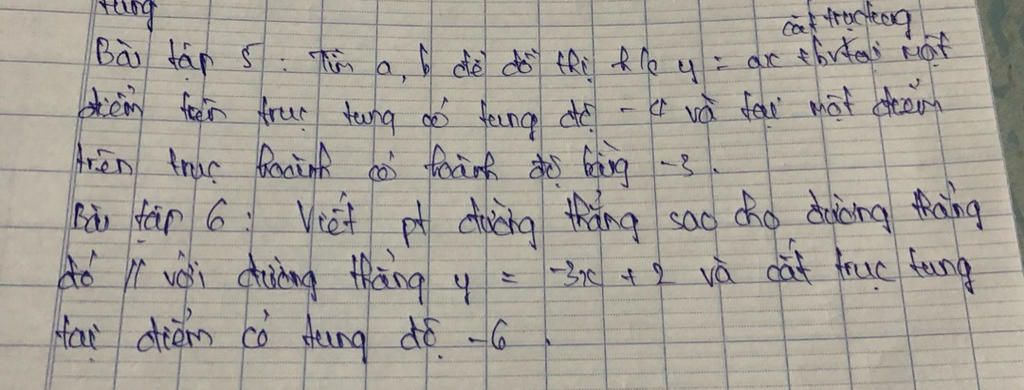 tung
cắt trục tung
Bài tập 5 : Tìm a, b để đồ thị h/s y = ax + b tại một
điểm trên trục tung có tung độ -4 và tại một điểm
trên trục hoành có hoành độ bằng -3.
Bài tập 6 : Viết pt đường thẳng sao cho đường thẳng
đó // với đường thẳng y = -3x + 2 và cắt trục tung
tại điểm có tung độ -6.